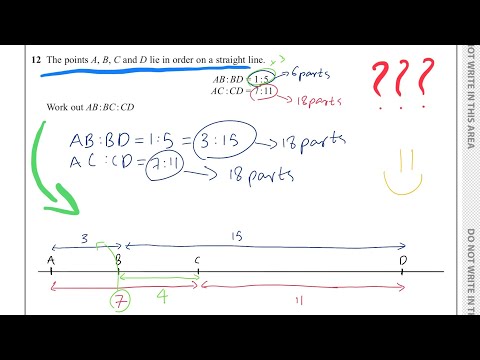 12 The points A, B, C and D lie in order on a straight line.
×3
AB : BD = 1 : 5 → 6 parts
AC : CD = 7 : 11
→ 18 parts
Work out AB : BC : CD
???
AB : BD = 1:5 = 3:15 → 18 parts
AC : CD = 7:11 → 18 parts
3 15
A B C D
7 4 11
NOT WRITE IN THIS AREA
DO NOT WRITE IN TH